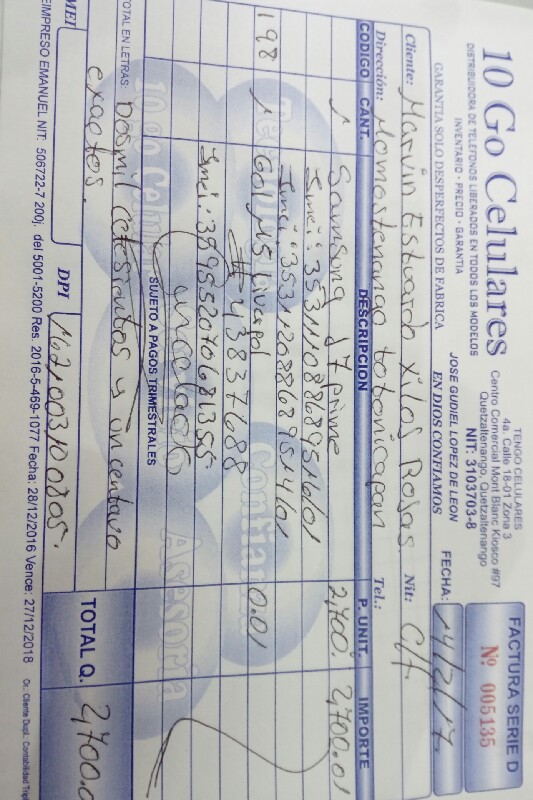 10 Go Celulares
DISTRIBUIDORA DE TELEFONOS LIBERADOS EN TODOS LOS MODELOS
INVENTARIO - PRECIO - GARANTIA
GARANTIA SOLO DESPERFECTOS DE FABRICA
TENGO CELULARES
4a. Calle 18-01 Zona 3
Centro Comercial Mont Blanc Kiosco #97
Quetzaltenango, Quetzaltenango
NIT: 3103703-8
JOSE GUDIEL LOPEZ DE LEON
EN DIOS CONFIAMOS
FACTURA SERIE D
Nº 005135
FECHA: 14/2/17.
Cliente: Marvin Estuardo Xilos Rosas. Nit: C/f
Dirección: Momostenango totonicapan Tel.:
CODIGO CANT. DESCRIPCION P. UNIT. IMPORTE
1 Samsung J7 prime 2,700. 2,700.01
Imei: 353111088689516/01
Imei: 353112088689514/01
198 1 601 M5 Livapol 0.01
# 43837688
Imei: 359552070681355
SUJETO A PAGOS TRIMESTRALES
TOTAL EN LETRAS: Dosmil setesientos y un centavo
exactos.
TOTAL Q. 2,700.0
IMEI
DPI 1621003100805.
REIMPRESO EMANUEL NIT: 506722-7 200j. del 5001-5200 Res. 2016-5-469-1077 Fecha: 28/12/2016 Vence: 27/12/2018 Or.: Cliente Dupl.: Contabilidad Trip